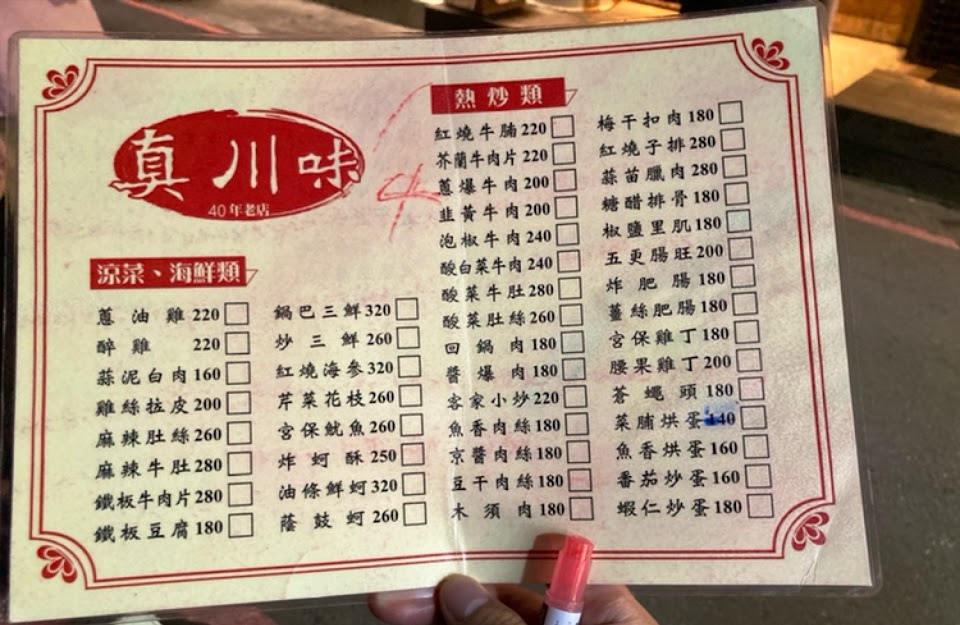 真川味
40年老店
涼菜、海鮮類
蔥油雞220
醉雞 220
蒜泥白肉160
雞絲拉皮200
麻辣肚絲260
麻辣牛肚280
鐵板牛肉片280
鐵板豆腐180
鍋巴三鮮320
炒三鮮260
紅燒海參320
芹菜花枝260
宮保魷魚260
炸蚵酥250
油條鮮蚵320
蔭鼓蚵260
熱炒類
紅燒牛腩220
芥蘭牛肉片220
蔥爆牛肉200
韭黃牛肉200
泡椒牛肉240
酸白菜牛肉240
酸菜牛肚280
酸菜肚絲260
回鍋肉180
醬爆肉180
客家小炒220
魚香肉絲180
京醬肉絲180
豆干肉絲180
木須肉180
梅干扣肉180
紅燒子排280
蒜苗臘肉280
糖醋排骨180
椒鹽里肌180
五更腸旺200
炸肥腸180
薑絲肥腸180
宮保雞丁180
腰果雞丁200
蒼蠅頭180
菜脯烘蛋140
魚香烘蛋160
番茄炒蛋160
蝦仁炒蛋180